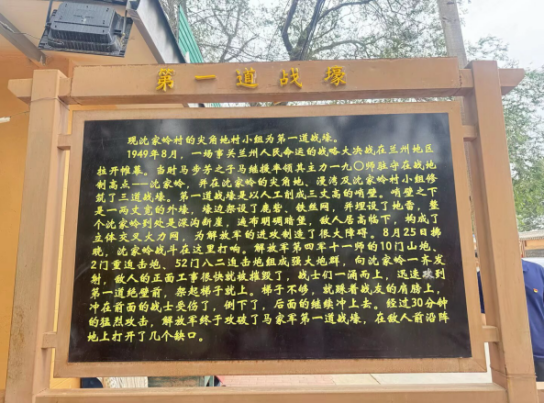 第一道战壕
观沈家岭村的尖角地村小组为第一道战壕。
1949年8月，一场事关兰州人民命运的战略大决战在兰州地区
拉开帷幕。当时马步芳之子马继援率领其主力一九〇师驻守在战地
制高点——沈家岭，并在沈家岭的尖角地、漫湾及沈家岭村小组修
筑了三道战壕。第一道战壕是以人工削成三丈高的峭壁。峭壁之下
是一两丈宽的外壕，壕边架设了鹿砦、铁丝网，并埋设了地雷，整
个沈家岭到处是深沟新崖，决布明明暗堡，敌人居高临下，构成了
立体交叉火力网，为解放军的进攻制造了很大障碍。8月25日拂
晓，沈家岭战斗在这里打响。解放军第四军十一师的10门山炮、
2门重迫击炮、52门八二迫击炮组成强大炮群，向沈家岭一齐发
射，敌人的正面工事很快就被摧毁了，战士们一涌而上，迅速攻到
第一道绝壁前，架起梯子就上，梯子不够，就踩着战友的肩膀上，
冲在前面的战士受伤了，倒下了，后面的继续冲上去。经过30分钟
的猛烈攻击，解放军终于攻破了马家军第一道战壕，在敌人前沿阵
地上打开了几个缺口。